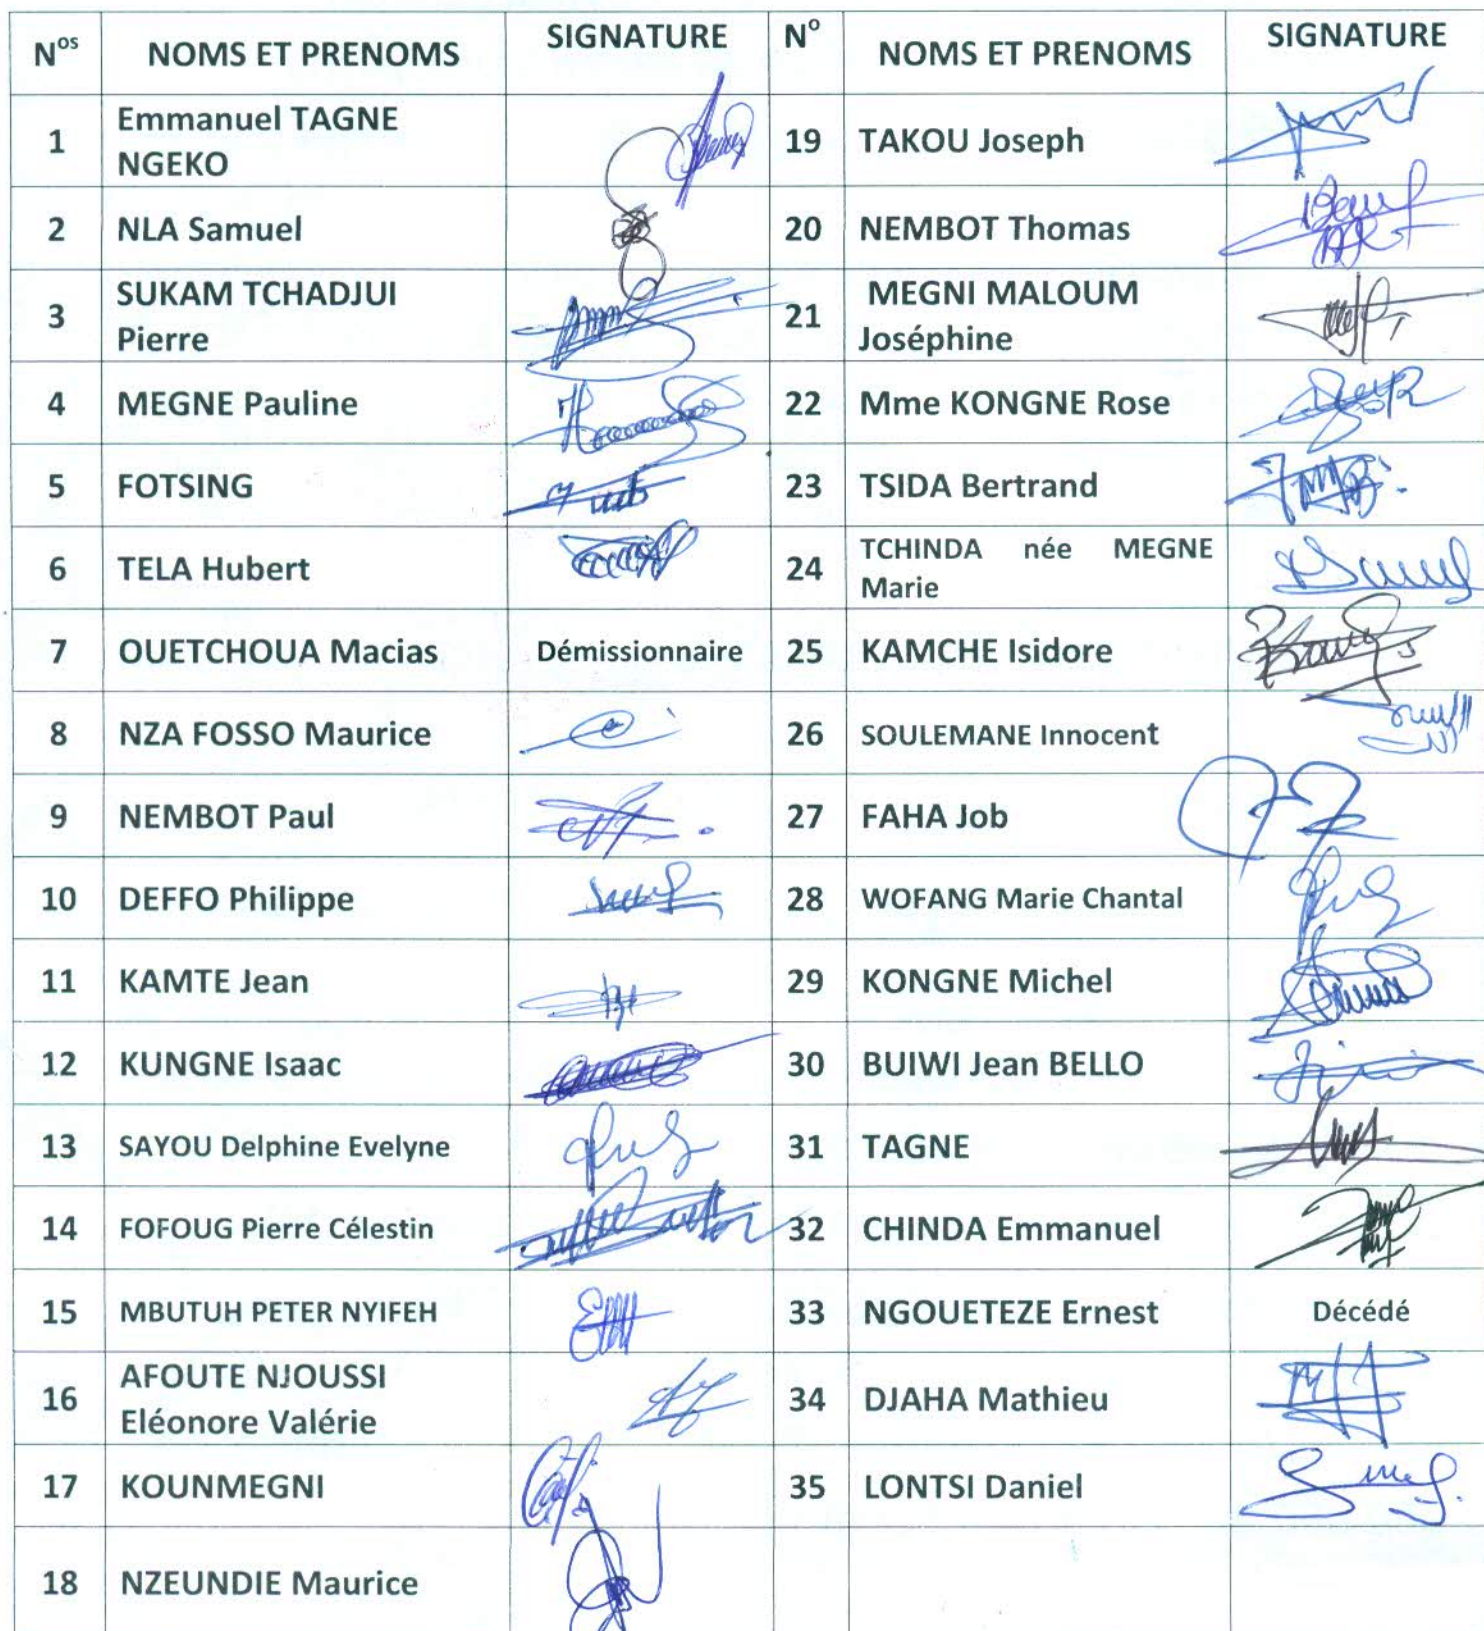 Nos NOMS ET PRENOMS SIGNATURE No NOMS ET PRENOMS SIGNATURE
1 Emmanuel TAGNE 19 TAKOU Joseph
NGEKO
2 NLA Samuel 20 NEMBOT Thomas
3 SUKAM TCHADJUI 21 MEGNI MALOUM
Pierre Joséphine
4 MEGNE Pauline 22 Mme KONGNE Rose
5 FOTSING 23 TSIDA Bertrand
6 TELA Hubert 24 TCHINDA née MEGNE
Marie
7 OUETCHOUA Macias Démissionnaire 25 KAMCHE Isidore
8 NZA FOSSO Maurice 26 SOULEMANE Innocent
9 NEMBOT Paul 27 FAHA Job
10 DEFFO Philippe 28 WOFANG Marie Chantal
11 KAMTE Jean 29 KONGNE Michel
12 KUNGNE Isaac 30 BUIWI Jean BELLO
13 SAYOU Delphine Evelyne 31 TAGNE
14 FOFOUG Pierre Célestin 32 CHINDA Emmanuel
15 MBUTUH PETER NYIFEH 33 NGOUETEZE Ernest Décédé
16 AFOUTE NJOUSSI 34 DJAHA Mathieu
Eléonore Valérie
17 KOUNMEGNI 35 LONTSI Daniel
18 NZEUNDIE Maurice